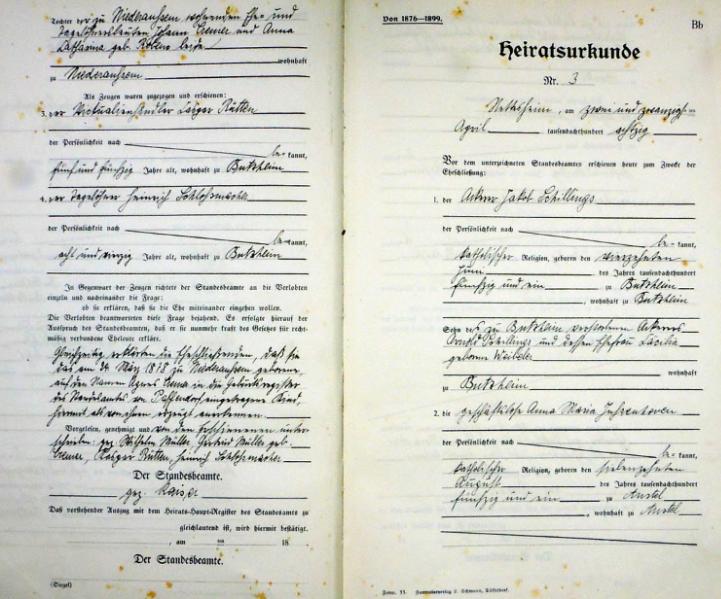 Tochter der zu Niederaußem wohnenden Ehe- und
Tagelöhnersleuten Johann Cremer und Anna
Catharina geb.
wohnhaft
zu Niederaußem
Als Zeugen waren zugezogen und erschienen:
3. der Victualienhändler Caspar Rütten
der Persönlichkeit nach
be- kannt,
fünf und fünfzig Jahre alt, wohnhaft zu Butzheim
4. der Tagelöhner Heinrich Schlossmacher
der Persönlichkeit nach
be- kannt,
acht und vierzig Jahre alt, wohnhaft zu Butzheim
In Gegenwart der Zeugen richtete der Standesbeamte an die Verlobten
einzeln und nacheinander die Frage:
ob sie erklären, daß sie die Ehe miteinander eingehen wollen.
Die Verlobten beantworteten diese Frage bejahend. Es erfolgte hierauf der
Ausspruch des Standesbeamten, daß er sie nunmehr kraft des Gesetzes für recht-
mäßig verbundene Eheleute erkläre.
Gleichzeitig erklärten die Eheschließenden, daß sie
das am 24. März 1878 zu Niederaußem geborene,
auf den Namen Agnes Cremer in die Geburtsregister
des Standesamtes von eingetragene Kind
hiermit als von ihnen erzeugt anerkennen.
Vorgelesen, genehmigt und von den Erschienenen unter-
schrieben: gez. Wilhelm Müller, Gertrud Müller geb.
Cremer, Kaspar Rütten, Heinrich Schlossmacher
Der Standesbeamte.
gez. Kaiser
Daß vorstehender Auszug mit dem Heirats-Haupt-Register des Standesamts zu
gleichlautend ist, wird hiermit bestätigt.
, am ten 18
Der Standesbeamte.
(Siegel)
Von 1876—1899.
Bb
Heiratsurkunde
Nr. 3
Nettesheim, am zwei und zwanzigsten
April tausendachthundert achtzig
Vor dem unterzeichneten Standesbeamten erschienen heute zum Zwecke der
Eheschließung:
1. der Ackerer Jakob Schillings
der Persönlichkeit nach
be- kannt,
katholischer Religion, geboren den vierzehnten
Juni des Jahres tausendachthundert
fünfzig und ein zu Butzheim
, wohnhaft zu Butzheim
Sohn des zu Butzheim verstorbenen Ackerers
Schillings und dessen Ehefrau Cäcilia
geborene
wohnhaft
zu Butzheim
2. die geschäftslose Anna Maria
der Persönlichkeit nach
be- kannt,
katholischer Religion, geboren den siebenzehnten
August des Jahres tausendachthundert
fünfzig und ein zu Anstel
, wohnhaft zu Anstel
Form. 11. Formularverlag L. Schwann, Düsseldorf.